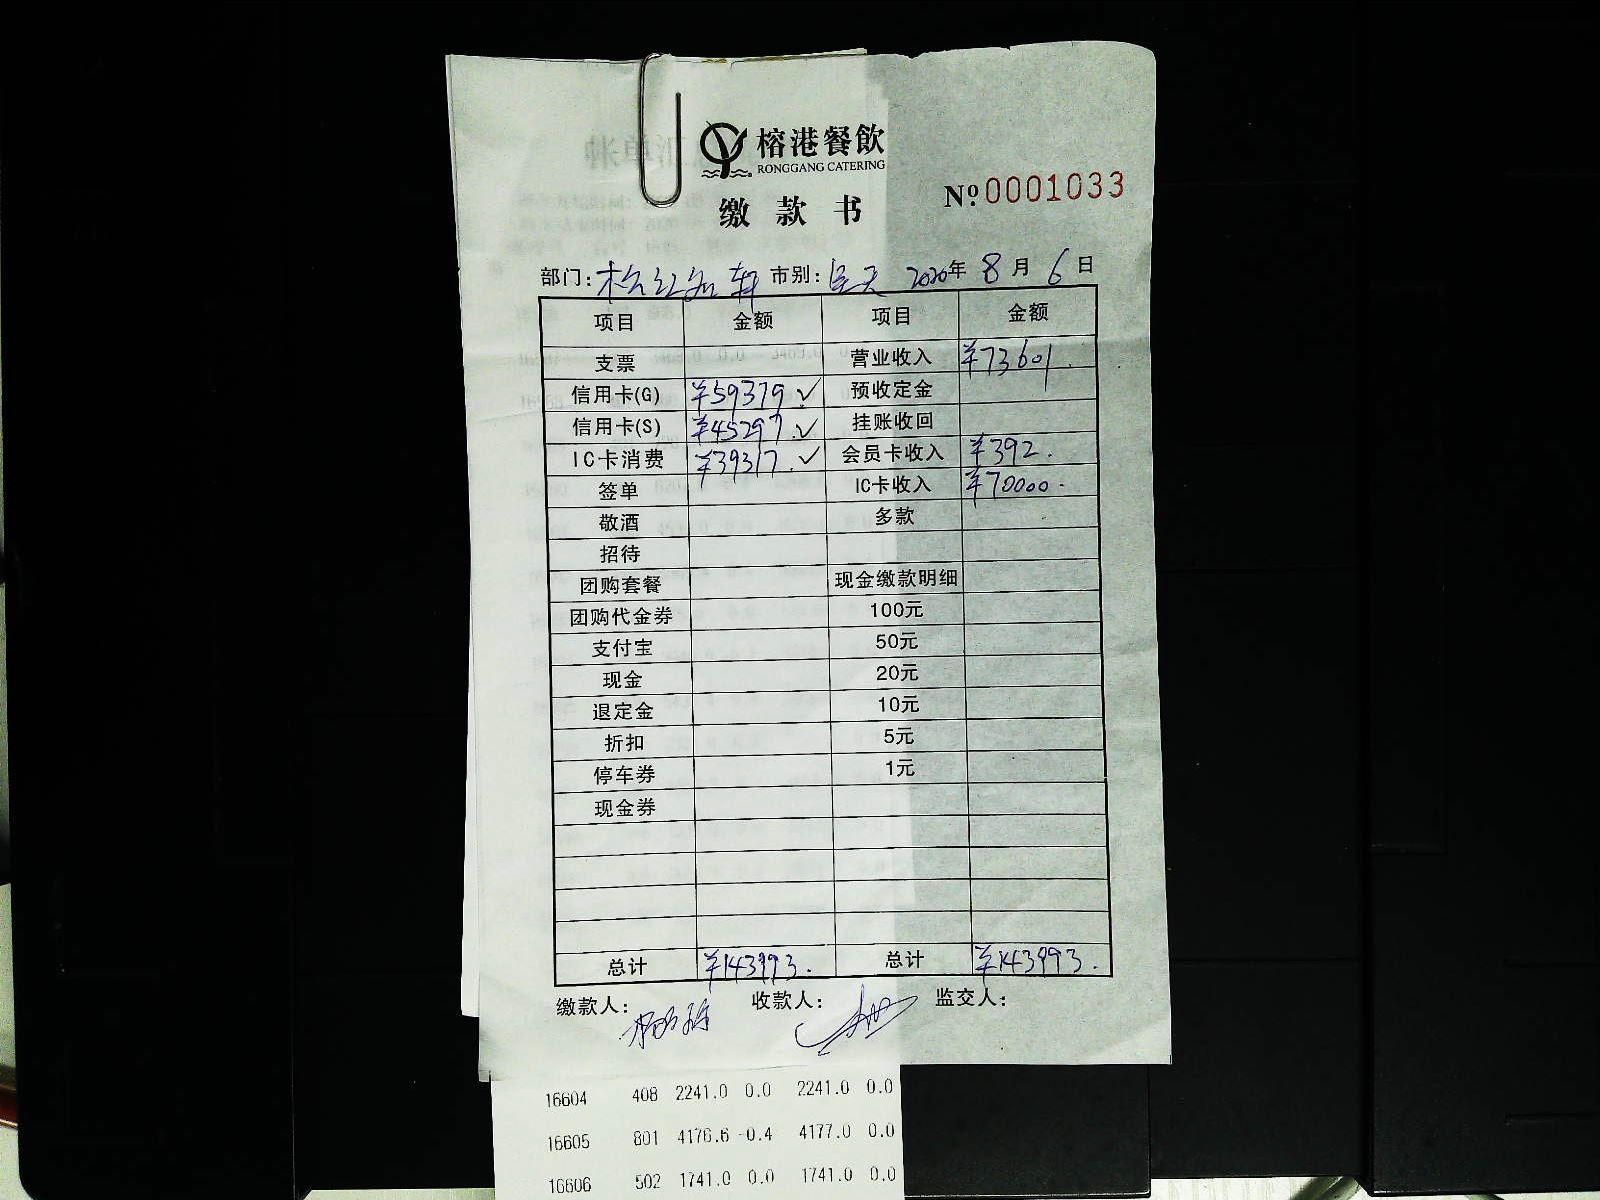 榕港餐飲
RONGGANG CATERING
缴款书
№0001033
部门: 市别: 全天 2020年 8月 6日
项目 金额 项目 金额
支票 营业收入 ¥73601.
信用卡(G) ¥59379.✓ 预收定金
信用卡(S) ¥45297.✓ 挂账收回
IC卡消费 ¥39317.✓ 会员卡收入 ¥392.
签单 IC卡收入 ¥70000.
敬酒 多款
招待
团购套餐 现金缴款明细
团购代金券 100元
支付宝 50元
现金 20元
退定金 10元
折扣 5元
停车券 1元
现金券
总计 ¥143993. 总计 ¥143993.
缴款人: 收款人: 监交人:
16604 408 2241.0 0.0 2241.0 0.0
16605 801 4176.6 -0.4 4177.0 0.0
16606 502 1741.0 0.0 1741.0 0.0